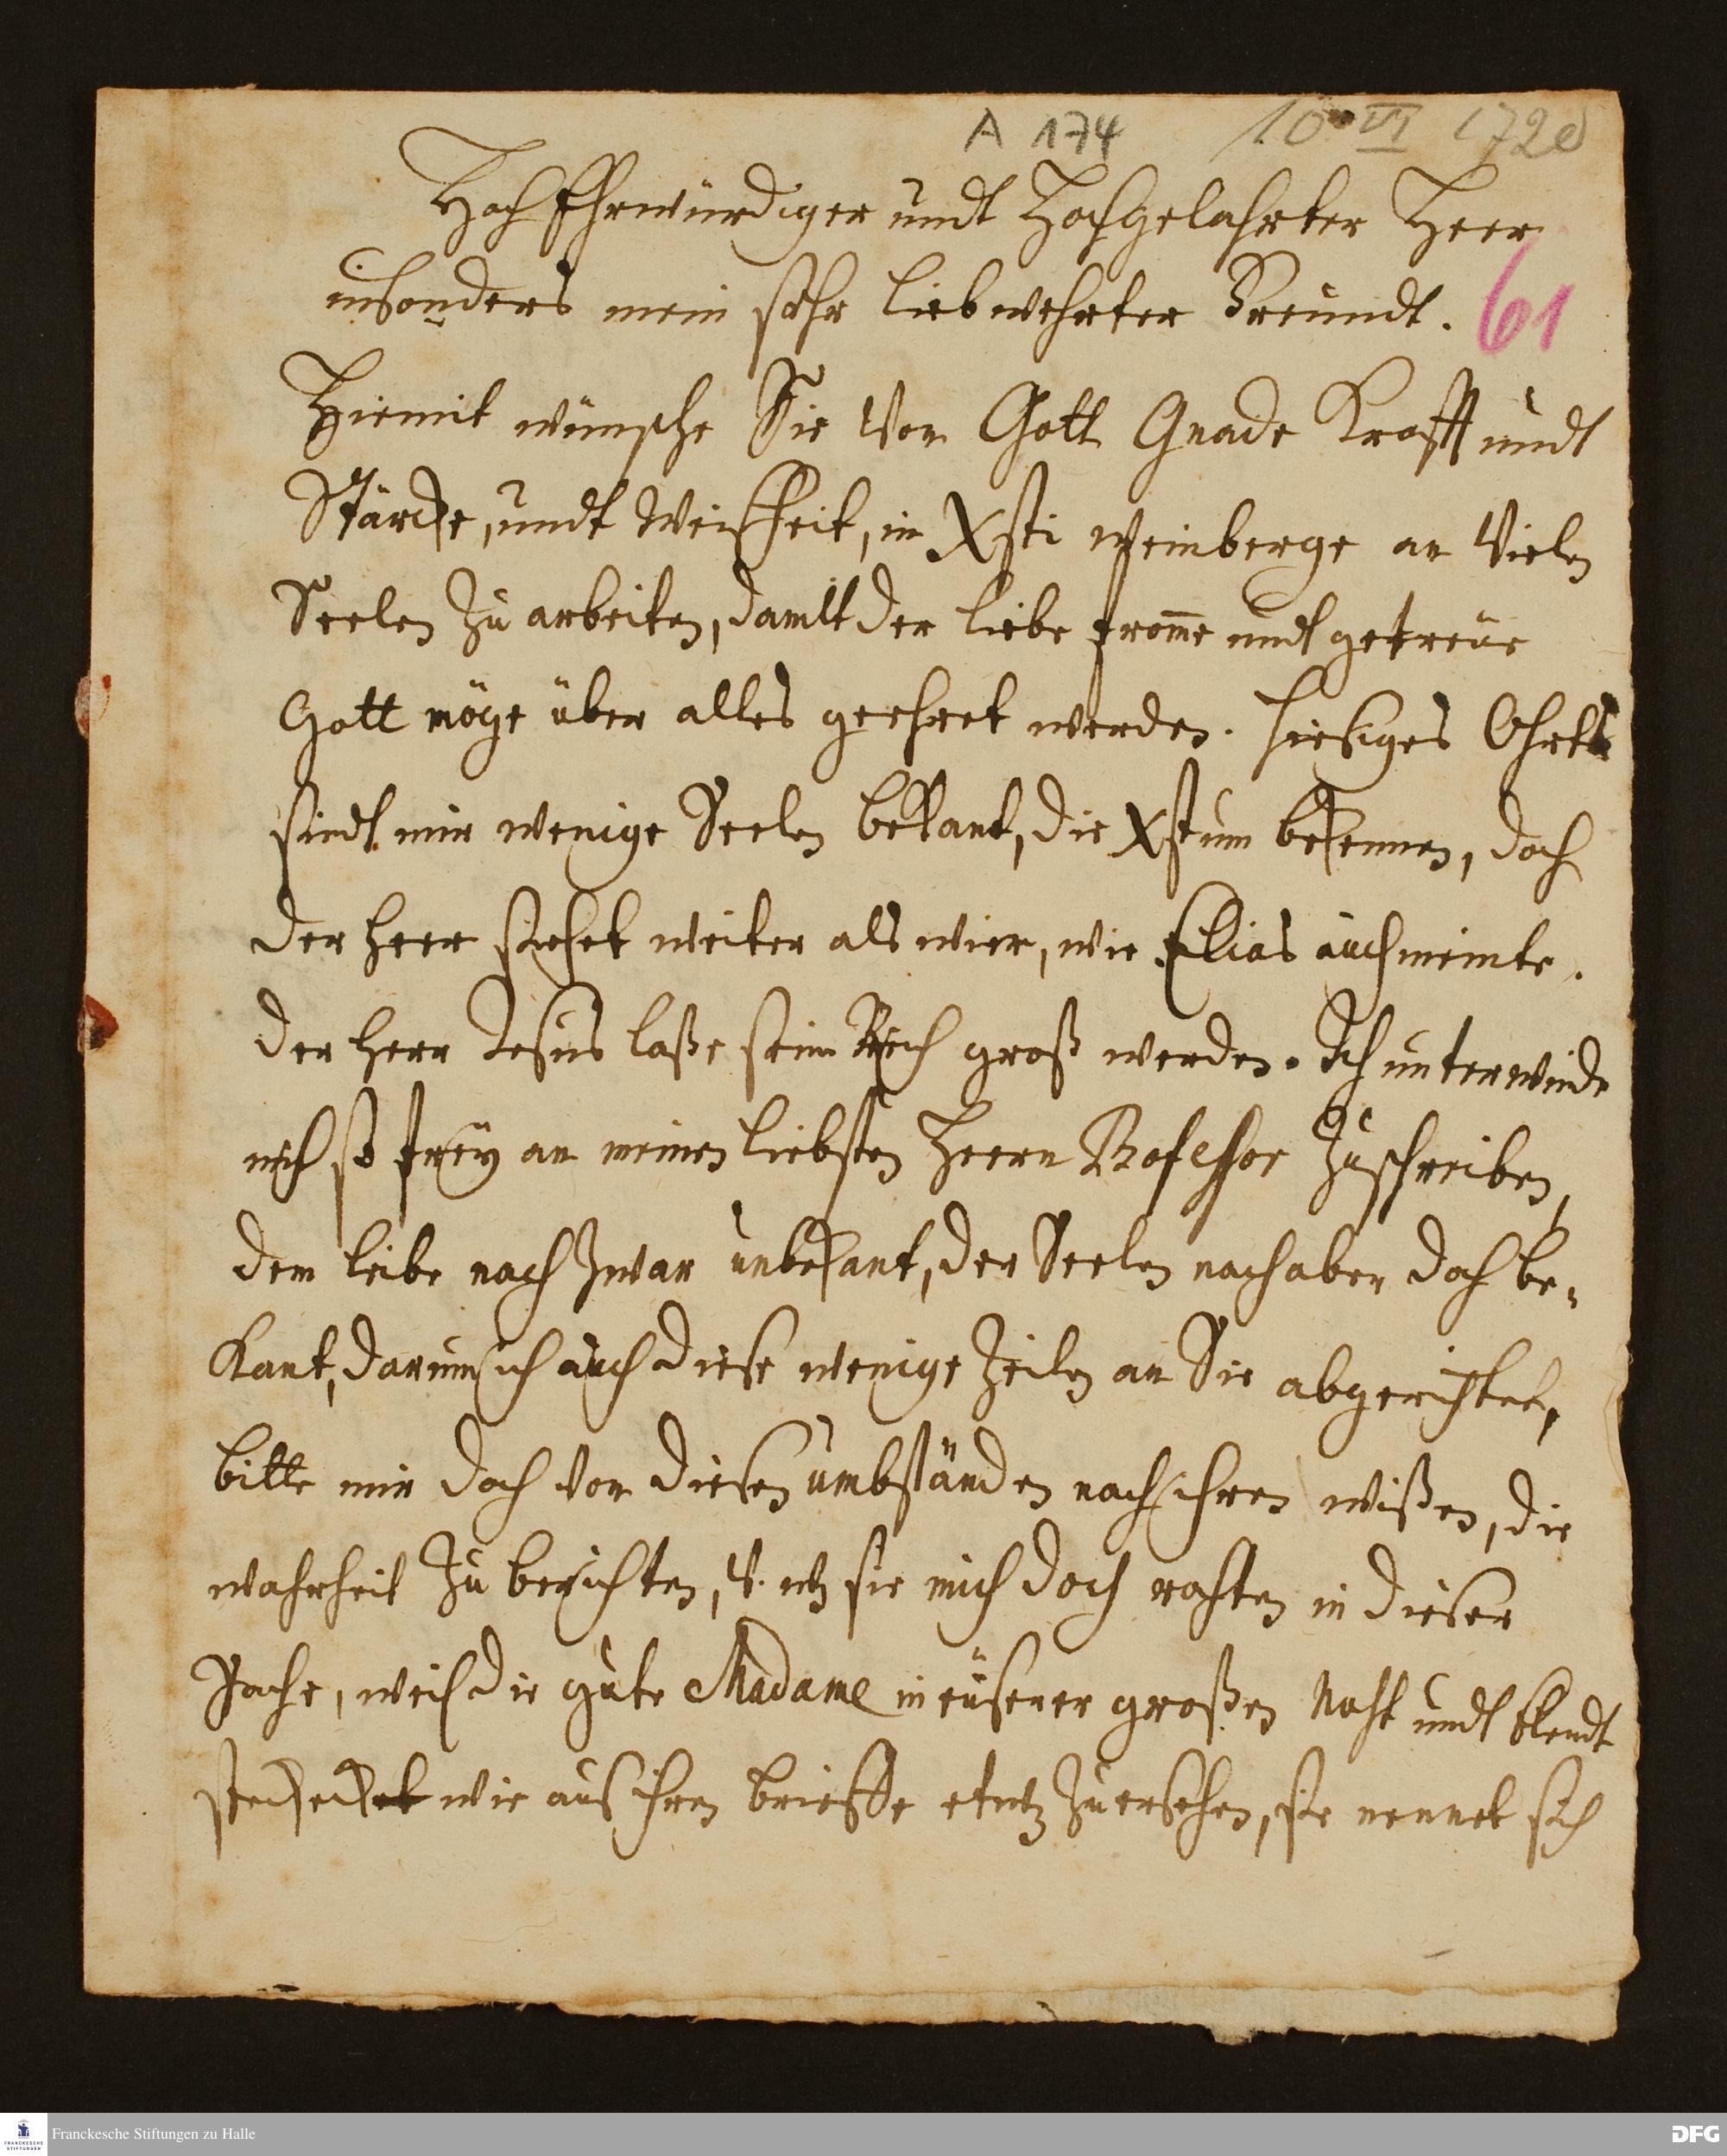 A 174 10 VI 1720
HochEhrwürdiger undt Hochgelahrter Herr
insonders mein sehr liebwehrter Freundt.
61
Hiemit wünsche Sie von Gott Gnade Krafft undt
Stärcke, undt Weißheit, in Xsti Weinberge an Vielen
Seelen zu arbeiten, damitt der liebe fromme undt getreüe
Gott möge über alles geehret werden. hiesiges Ohrts
sindt mir wenige Seelen bekant, die Xstum bekennen, doch
der Herr siehet weiter als wier, wie Elias auch meinte.
der Herr Jesus laße sein Reich groß werden. Ich unterwinde
mich so freÿ an meinen liebsten Herrn Profeßor zuschreiben,
dem leibe nach zwar unbekant, der Seelen nach aber doch be-
kant, darumb ich auch diese wenige Zeilen an Sie abgerichtet,
bitte mir doch von diesen umbständen nach ihren wißen, die
wahrheit zu berichten, sie mich doch rahten in dieser
Sache, weil die gute Madame in eüserer großen Noht undt Elendt
stecket wie aus ihren brieffe zu ersehen, sie nennet sich
Franckesche Stiftungen zu Halle
FRANCKESCHE STIFTUNGEN
DFG